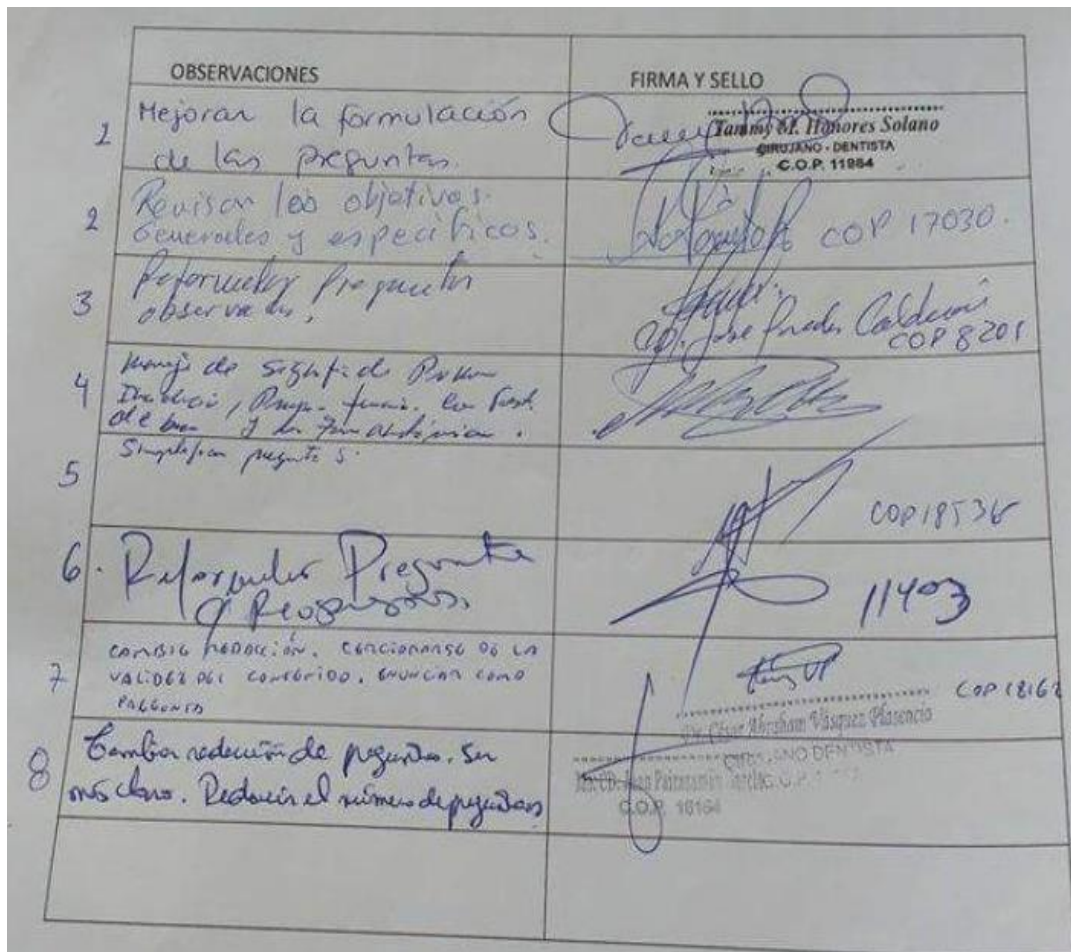 OBSERVACIONES
FIRMA Y SELLO
1
Mejorar la formulación
de las preguntas.
Tammy M. Honores Solano
CIRUJANO - DENTISTA
C.O.P. 11884
2
Revisar los objetivos
Generales y específicos.
COP 17030.
3
Reformular Preguntas
observadas.
José Paredes Calderón
COP 8201
4
Manejo de
5
Simplificar pregunta 5.
COP 18536
6. Reformular Pregunta
y Respuestas.
11403
7
CAMBIO REDACCIÓN. CERCIORARSE DE LA
VALIDEZ DEL CONTENIDO. ENUNCIAR COMO
PREGUNTA
COP 18162
Dr. César Abraham Vásquez Plasencia
CIRUJANO DENTISTA
8
Cambiar redacción de preguntas. Ser
más claro. Reducir el número de preguntas
C.O.P. 16164